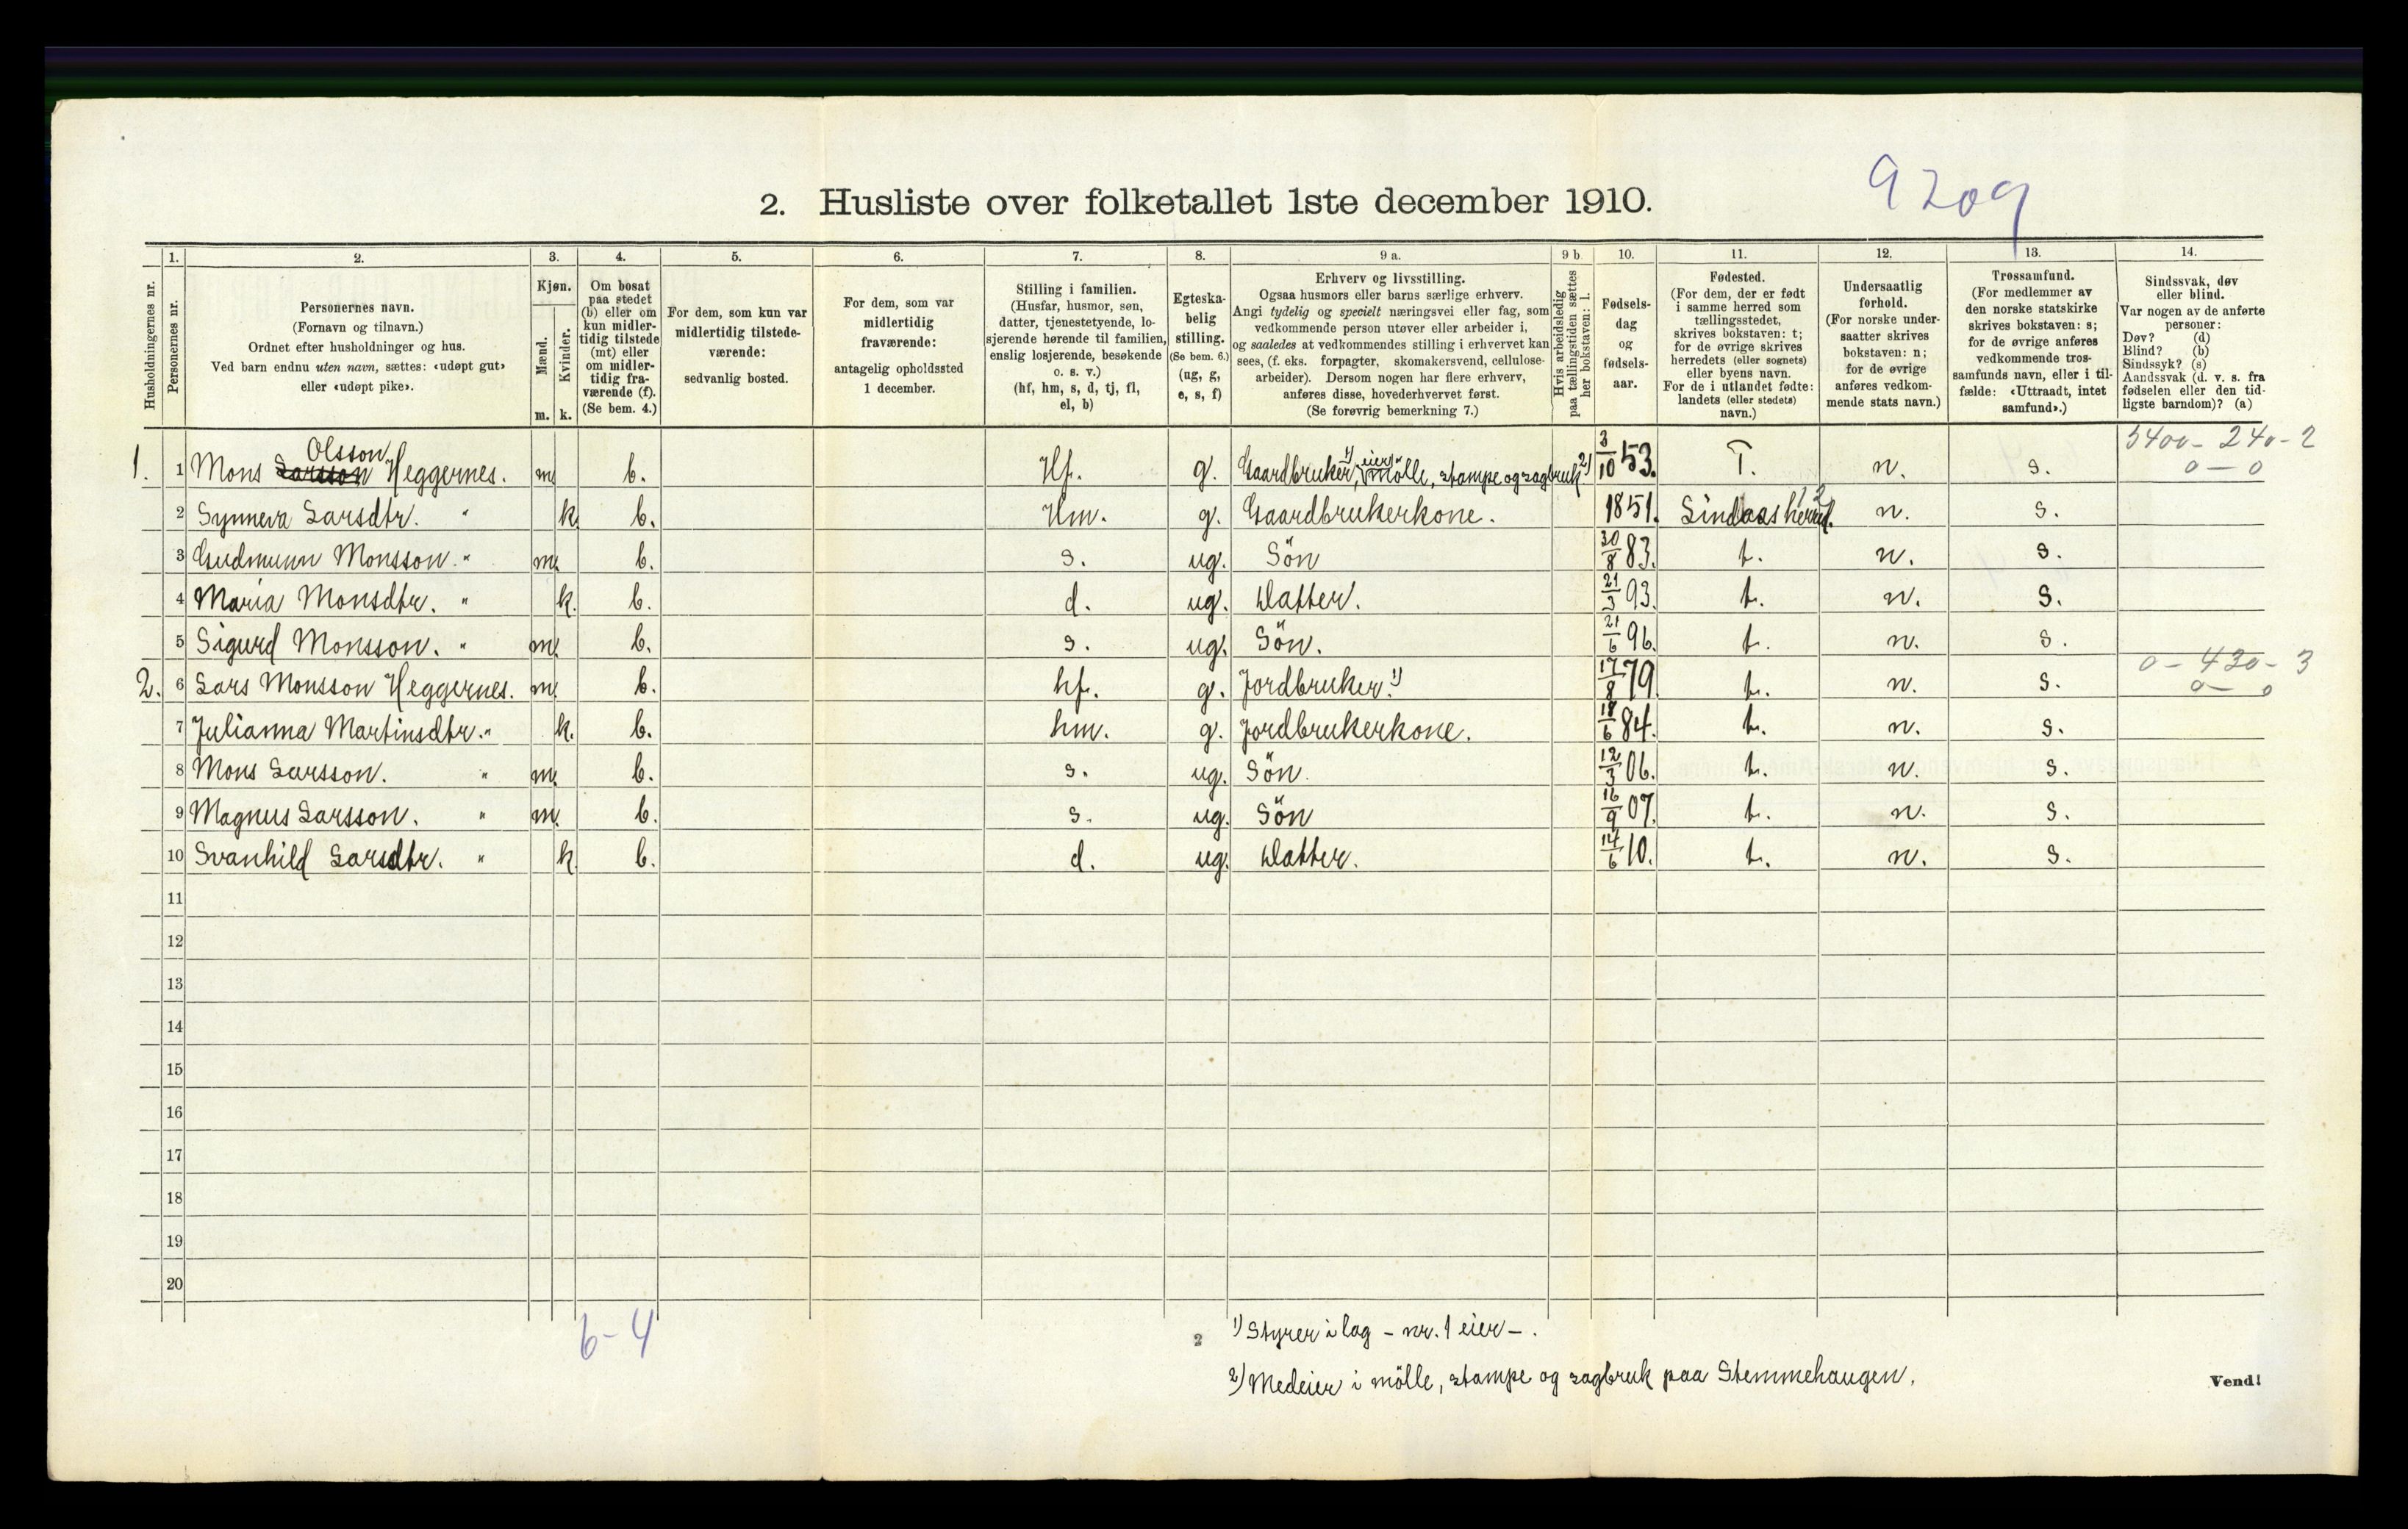 9209
2. Husliste over folketallet 1ste december 1910.
Husholdningernes nr.
1. Personernes nr.
2. Personernes navn.
(Fornavn og tilnavn.)
Ordnet efter husholdninger og hus.
Ved barn endnu uten navn, sættes: «udøpt gut»
eller «udøpt pike».
3. Kjøn.
Mænd. m.
Kvinder. k.
4. Om bosat
paa stedet
(b) eller om
kun midler-
tidig tilstede
(mt) eller
om midler-
tidig fra-
værende (f).
(Se bem. 4.)
5. For dem, som kun var
midlertidig tilstede-
værende:
sedvanlig bosted.
6. For dem, som var
midlertidig
fraværende:
antagelig opholdssted
1 december.
7. Stilling i familien.
(Husfar, husmor, søn,
datter, tjenestetyende, lo-
sjerende hørende til familien,
enslig losjerende, besøkende
o. s. v.)
(hf, hm, s, d, tj, fl,
el, b)
8. Egteska-
belig
stilling.
(Se bem. 6.)
(ug, g,
e, s, f)
9 a. Erhverv og livsstilling.
Ogsaa husmors eller barns særlige erhverv.
Angi tydelig og specielt næringsvei eller fag, som
vedkommende person utøver eller arbeider i,
og saaledes at vedkommendes stilling i erhvervet kan
sees, (f. eks. forpagter, skomakersvend, cellulose-
arbeider). Dersom nogen har flere erhverv,
anføres disse, hovederhvervet først.
(Se forøvrig bemerkning 7.)
9 b. Hvis arbeidsledig
paa tællingstiden sættes
her bokstaven: l.
10. Fødsels-
dag
og
fødsels-
aar.
11. Fødested.
(For dem, der er født
i samme herred som
tællingsstedet,
skrives bokstaven: t;
for de øvrige skrives
herredets (eller sognets)
eller byens navn.
For de i utlandet fødte:
landets (eller stedets)
navn.)
12. Undersaatlig
forhold.
(For norske under-
saatter skrives
bokstaven: n;
for de øvrige
anføres vedkom-
mende stats navn.)
13. Trossamfund.
(For medlemmer av
den norske statskirke
skrives bokstaven: s;
for de øvrige anføres
vedkommende tros-
samfunds navn, eller i til-
fælde: «Uttraadt, intet
samfund».)
14. Sindssvak, døv
eller blind.
Var nogen av de anførte
personer:
Døv? (d)
Blind? (b)
Sindssyk? (s)
Aandssvak (d. v. s. fra
fødselen eller den tid-
ligste barndom)? (a)
1. 1 Mons Larsson Olsson Heggernes. m. b. Hf. g. Gaardbruker, 1) eier mölle, stampe og sagbruk 2) 3/10 53. T. n. s. 5400 - 240 - 2
0 - 0
2 Synneva Larsdtr. " k. b. Hm. g. Gaardbrukerkone. 1851. Lindaas herred. 12 n. s.
3 Gudmunn Monsson. " m. b. s. ug. Sön 30/8 83. t. n. s.
4 Maria Monsdtr. " k. b. d. ug. Datter. 21/3 93. t. n. s.
5 Sigurd Monsson. " m. b. s. ug. Sön. 21/6 96. t. n. s.
2. 6 Lars Monsson Heggernes. m. b. hf. g. Jordbruker. 1) 17/8 79. t. n. s. 0 - 430 - 3
0 - 0
7 Julianna Martinsdtr. " k. b. hm. g. Jordbrukerkone. 18/6 84. t. n. s.
8 Mons Larsson. " m. b. s. ug. Sön. 12/3 06. t. n. s.
9 Magnus Larsson. " m. b. s. ug. Sön 16/9 07. t. n. s.
10 Svanhild Larsdtr. " k. b. d. ug. Datter. 14/6 10. t. n. s.
11
12
13
14
15
16
17
18
19
20
6-4
2
1) Styrer i lag - nr. 1 eier - .
2) Medeier i mölle, stampe og sagbruk paa Stemmehaugen.
Vend!